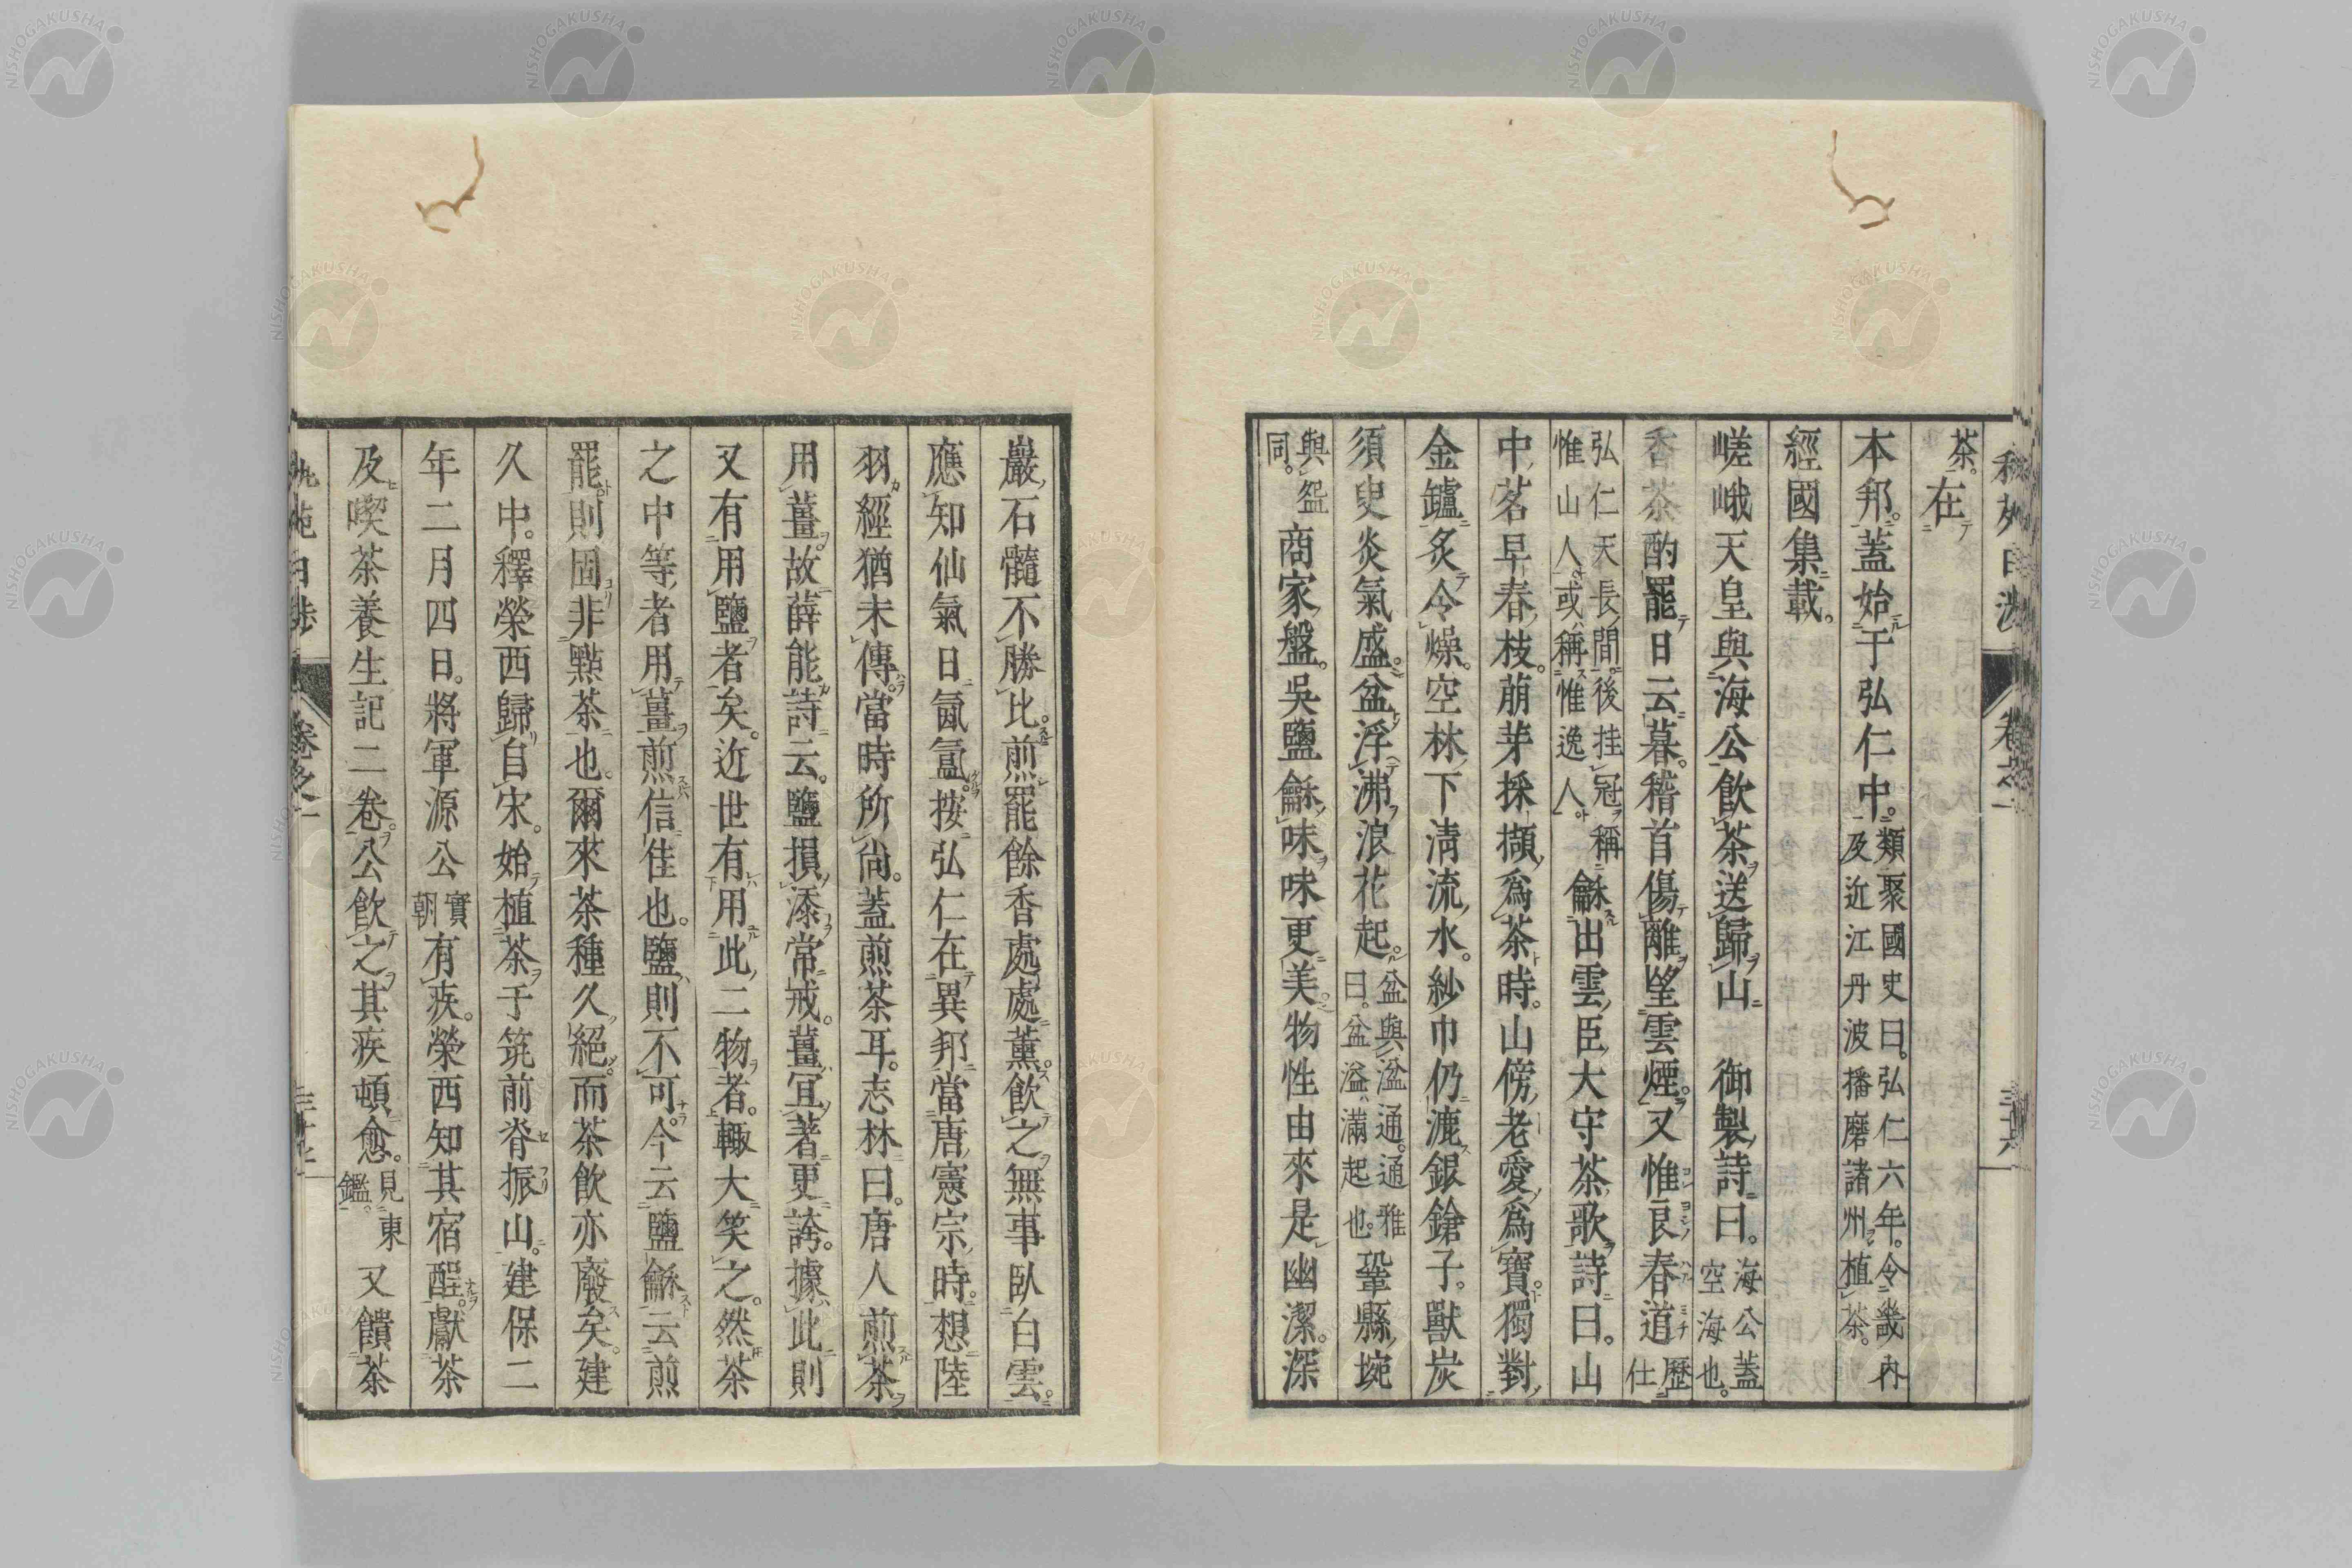 茶。在
本邦。蓋始于弘仁中。類聚國史曰。弘仁六年。令畿內及近江丹波播磨諸州植茶。
經國集載。
嵯峨天皇與海公飮茶送歸山 御製詩曰。海公蓋空海也。
香茶酌罷日云暮。稽首傷離望雲煙。又惟良春道歷仕
弘仁天長間。後挂冠稱惟山人。或稱惟逸人。龢出雲臣大守茶歌詩曰。山
中茗早春枝。萠芽採擷爲茶時。山傍老愛爲寶。獨對
金鑪炙令燥。空林下淸流水。紗巾仍漉銀鎗子。獸炭
須臾炎氣盛。盆浮沸浪花起。盆與湓通。通雅曰。盆溢滿起也。鞏縣埦
與盌同。商家盤。吳鹽龢味味更美。物性由來是幽潔。深
巖石髓不勝比。煎罷餘香處處薰。飮之無事臥白雲。
應知仙氣日氤氳。按弘仁在異邦當唐憲宗時。想陸
羽經猶未傳。當時所尙。蓋煎茶耳。志林曰。唐人煎茶
用薑。故薛能詩云。鹽損添常戒。薑宜著更誇。據此則
又有用鹽者矣。近世有用此二物者。輙大笑之。然茶
之中等者用薑煎信佳也。鹽則不可。今云鹽龢云煎
罷則固非點茶也。爾來茶種久絕。而茶飮亦廢矣。建
久中。釋榮西歸自宋。始植茶于筑前脊振山。建保二
年二月四日。將軍源公實朝有疾。榮西知其宿醒。獻茶
及喫茶養生記二卷。公飮之其疾頓愈。見東鑑。又饋茶
卷之一
NISHOGAKUSHA